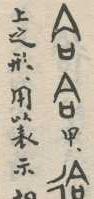 合 合 甲、
上之形、用以表示